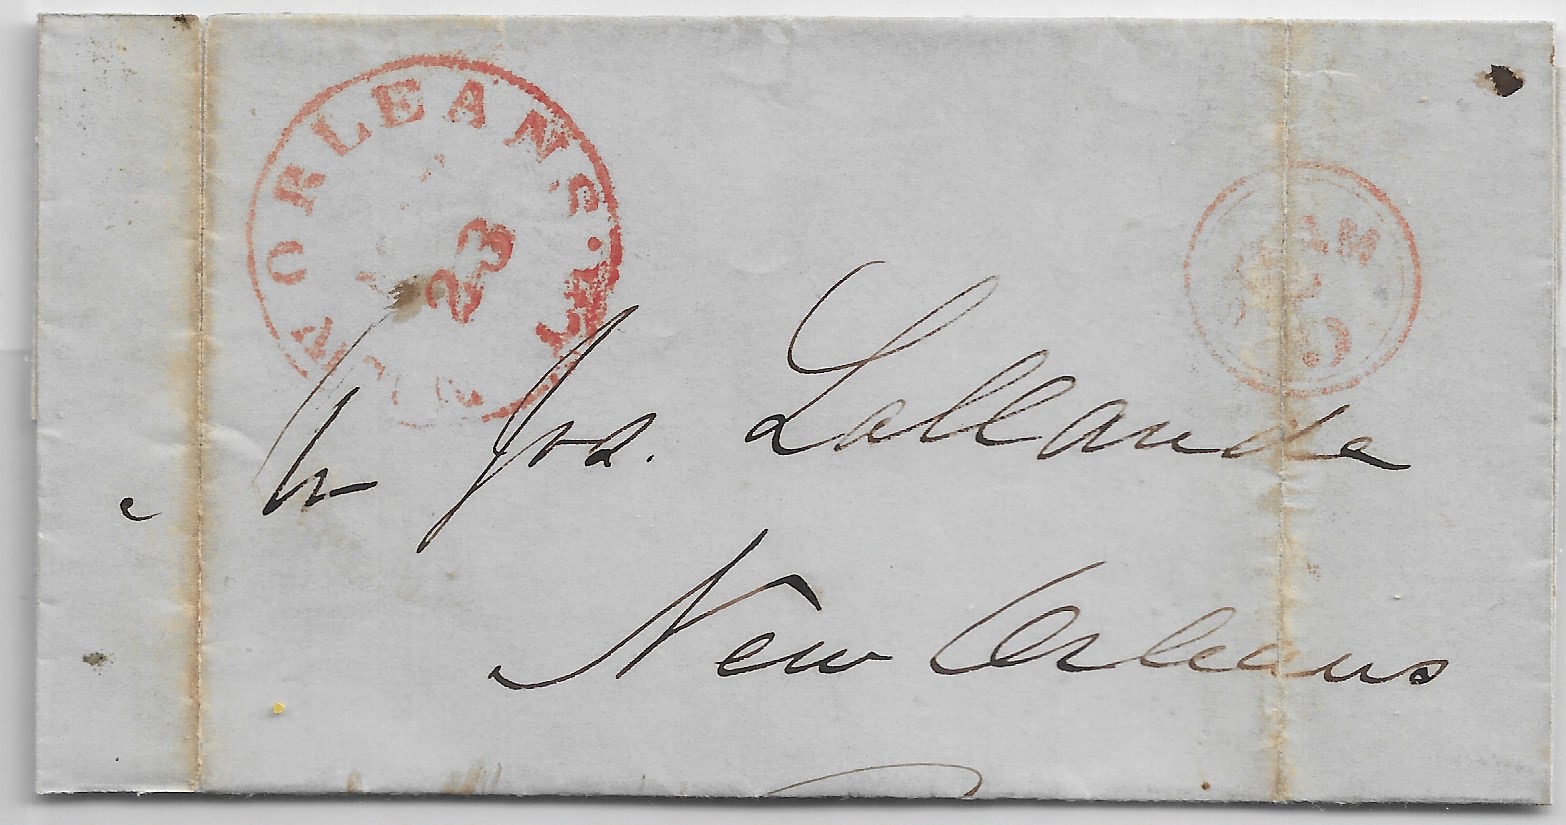 W ORLEANS. LA
23
AM
Jos. Lallande
New Orleans